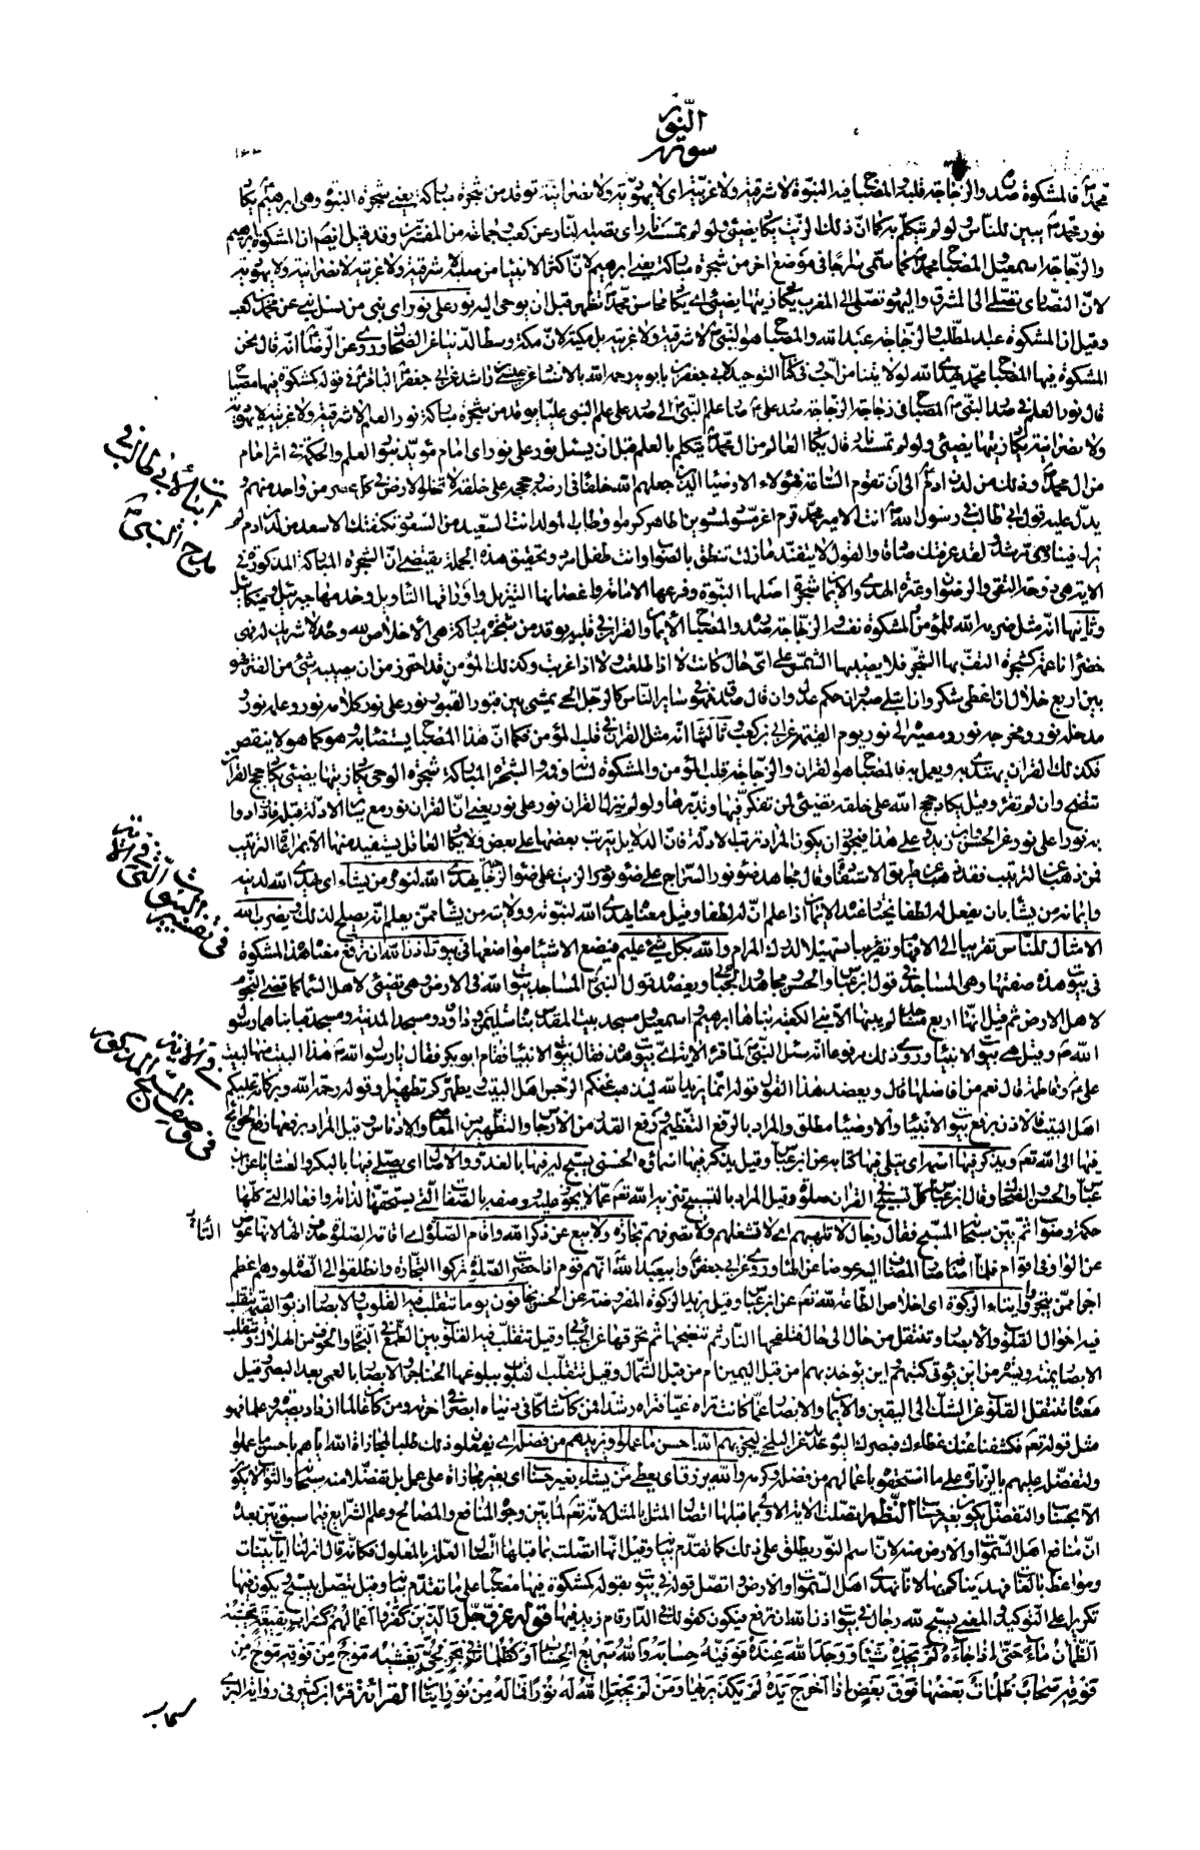 سورة النور
محمد فالمشكوة صدره والزجاجة قلبه والمصباح فيه النبوة لا شرقية ولا غربية اى لا يهودية ولا نصرانية توقد من شجرة مباركة يعنى شجرة النبوة وهى ابرهيم يكاد
نور محمد يبين للناس ولو لم يتكلم به كما ان ذلك الزيت يكاد يضيئ ولو لم تمسسه نار اى تصبه النار عن كعب وجماعة من المفسرين وقد قيل ايضا ان المشكوة ابرهيم
والزجاجة اسمعيل والمصباح محمد كما سمى سراجا فى موضع اخر من شجرة مباركة يعنى ابرهيم لان اكثر الانبياء من صلبه لا شرقية ولا غربية لا نصرانية ولا يهودية
لان النصارى تصلى الى المشرق واليهود تصلى الى المغرب يكاد زيتها يضيئ اى يكاد محاسن محمد تظهر قبل ان يوحى اليه نور على نور اى نبى من نسل نبى عن محمد بن كعب
وقيل ان المشكوة عبد المطلب والزجاجة عبد الله والمصباح هو النبى لا شرقية ولا غربية بل مكية لان مكة وسط الدنيا عن الضحاك وروى عن الرضا انه قال نحن
المشكوة فيها المصباح محمد يهدى الله لولايتنا من احب وفى كتاب التوحيد لابى جعفر بن بابويه رحمه الله بالاسناد عن عيسى بن راشد عن ابى جعفر الباقر فى قوله كمشكوة فيها مصباح
قال نور العلم فى صدر النبى المصباح فى زجاجة الزجاجة صدر على صار علم النبى الى صدر على علم النبى عليا يوقد من شجرة مباركة نور العلم لا شرقية ولا غربية لا يهودية
ولا نصرانية يكاد زيتها يضيئ ولو لم تمسسه نار قال يكاد العالم من ال محمد يتكلم بالعلم قبل ان يسئل نور على نور اى امام مؤيد بنور العلم والحكمة فى اثر امام
من ال محمد وذلك من لدن ادم الى ان تقوم الساعة فهؤلاء الاوصياء الذين جعلهم الله خلفاء فى ارضه وحججه على خلقه لا تخلو الارض فى كل عصر من واحد منهم و
يدل عليه قول ابى طالب فى رسول الله انت الامير محمد قرم اغر مسود لمسودين اطاهر كرموا وطاب المولد انت السعيد من السعود تكنفتك الاسعد من لدن ادم لم
يزل فينا وصى مرشد لقد عرفتك صادقا والقول لا يتفند ما زلت تنطق بالصواب وانت طفل امرد وتحقيق هذه الجملة يقتضى ان الشجرة المباركة المذكورة فى
الاية هى دوحة التقى والرضوان وعترة الهدى والايمان شجرة اصلها النبوة وفرعها الامامة واغصانها التنزيل واوراقها التاويل وخدمها جبرئيل وميكائيل
وثانيها انه مثل ضربه الله للمؤمن المشكوة نفسه والزجاجة صدره والمصباح الايمان والقران فى قلبه يوقد من شجرة مباركة هى الاخلاص لله وحده لا شريك له فهى
خضراء ناعمة كشجرة التف بها الشجر فلا يصيبها الشمس على اى حال كانت لا اذا طلعت ولا اذا غربت وكذلك المؤمن قد احترز من ان يصيبه شيئ من الفتر فهو
بين اربع خلال ان اعطى شكر وان ابتلى صبر وان حكم عدل وان قال صدق فهو فى ساير الناس كالرجل الحى يمشى بين قبور الاموات نور على نور كلامه نور وعلمه نور و
مدخله نور ومخرجه نور ومصيره الى نور يوم القيمة عن ابى بن كعب وثالثها انه مثل القران فى قلب المؤمن فكما ان هذا المصباح يستضاء به وهو كما هو لا ينقص
فكذلك القران يهتدى به ويعمل به فالمصباح هو القران والزجاجة قلب المؤمن والمشكوة لسانه وفمه والشجرة المباركة شجرة الوحى يكاد زيتها يضيئ يكاد حجج القران
تتضح وان لم تقرء وقيل يكاد حجج الله على خلقه تضيئ لمن تفكر فيها وتدبرها ولو لم ينزل القران نور على نور يعنى ان القران نور مع ساير الادلة قبله فازدادوا
به نورا على نور عن الحسن وابن زيد وعلى هذا فيجوز ان يكون المراد ترتيب الادلة فان الدلايل يترتب بعضها على بعض ولا يكاد العاقل يستفيد منها الا بمراعاة الترتيب
فمن ذهب عن الترتيب فقد ذهب عن طريق الاستفادة وقال مجاهد ضوء نور السراج على ضوء نور الزيت على ضوء الزجاجة يهدى الله لنوره من يشاء اى يهدى الله لدينه
وايمانه من يشاء بان يفعل له لطفا يختار عنده الايمان اذا علم ان له لطفا وقيل معناه يهدى الله لنبوته وولايته من يشاء ممن يعلم انه يصلح لذلك ويضرب الله
الامثال للناس تقريبا الى الافهام وتقريبا لتسهيل الدرك المرام والله بكل شئ عليم فيضع الاشياء مواضعها فى بيوت اذن الله ان ترفع معناه هذا المشكوة
فى بيوت هذه صفتها وهى المساجد فى قول ابن عباس والحسن ومجاهد والجبائى ويعضده قول النبى المساجد بيوت الله فى الارض وهى تضيئ لاهل السماء كما تضيئ النجوم
لاهل الارض ثم قيل انها اربع مساجد لم يبنها الا نبى الكعبة بناها ابرهيم واسمعيل ومسجد بيت المقدس بناه سليمن بن داود ومسجد المدينة ومسجد قبا بناهما رسول
الله وقيل هى بيوت الانبياء وروى ذلك مرفوعا انه سئل النبى لما قرئ الاية اى بيوت هذه فقال بيوت الانبياء فقام ابو بكر فقال يا رسول الله هذا البيت منها لبيت
على وفاطمة قال نعم من افاضلها قال ويعضد هذا القول قوله انما يريد الله ليذهب عنكم الرجس اهل البيت ويطهركم تطهيرا وقوله رحمة الله وبركاته عليكم
اهل البيت فالاذن برفع بيوت الانبياء والاوصياء مطلق والمراد بالرفع التعظيم ورفع القدر من الارجاس والتطهير من المعاصى والادناس وقيل المراد برفعها رفع الحوائج
فيها الى الله تعالى ويذكر فيها اسمه اى يتلى فيها كتابه عن ابن عباس وقيل يذكر فيها اسماؤه الحسنى يسبح له فيها بالغدو والاصال اى يصلى فيها بالبكر والعشايا عن ابن
عباس والحسن والضحاك وقال ابن عباس كل تسبيح فى القران صلوة وقيل المراد بالتسبيح تنزيه الله تعالى عما لا يجوز عليه ووصفه بالصفات التى يستحقها لذاته وافعاله التى كلها
حكمة وصواب ثم بين سبحانه المسبح فقال رجال لا تلهيهم اى لا تشغلهم ولا تصرفهم تجارة ولا بيع عن ذكر الله واقام الصلوة اى اقامة الصلوة حذف الهاء لانها عوض
عن الواو فى اقوام فلما اضافه صار المضاف اليه عوضا عن الهاء وروى عن ابى جعفر وابى عبد الله انهم قوم اذا حضرت الصلوة تركوا التجارة وانطلقوا الى الصلوة وهم اعظم
اجرا ممن يتجر وايتاء الزكوة اى اخلاص الطاعة لله تعالى عن ابن عباس وقيل يريد الزكوة المفروضة عن الحسن يخافون يوما تتقلب فيه القلوب والابصار اراد يوم القيمة تتقلب
فيه احوال القلوب والابصار وتنتقل من حال الى حال فتلفحها النار ثم تنضجها ثم تحرقها عن الجبائى وقيل تتقلب فيه القلوب بين الطمع فى النجاة والخوف من الهلاك وتتقلب
الابصار يمنة ويسرة من اين يؤتى كتبهم ومن اين يؤخذ بهم امن قبل اليمين ام من قبل الشمال وقيل تتقلب القلوب ببلوغها الحناجر والابصار بالعمى بعد البصر وقيل
معناه تنتقل القلوب عن الشك الى اليقين والايمان والابصار عما كانت تراه غيا فتراه رشدا فمن كان شاكا فى دنياه ابصر فى اخرته ومن كان عالما ازداد بصيرة وعلما فهو
مثل قوله تعالى فكشفنا عنك غطاءك فبصرك اليوم حديد عن البلخى ليجزيهم الله احسن ما عملوا ويزيدهم من فضله اى يفعلون ذلك طلبا لمجازاة الله اياهم باحسن ما عملوا
ولتفضله عليهم بالزيادة على ما استحقوه باعمالهم من فضله وكرمه والله يرزق اى يعطى من يشاء بغير حساب اى بغير مجازاة على عمل بل تفضلا منه سبحانه والثواب لا يكون
الا بحساب والتفضل يكون بغير حساب النظم اتصلت الاية الاولى بما قبلها اتصال المثل بالمثل لانه تعالى لما بين وجوه المنافع والمصالح وعلم الشرايع فيما سبق بين بعده
ان منافع اهل السموات والارض منه لان اسم النور يطلق على ذلك كما تقدم بيانه وقيل انها اتصلت بما قبلها اتصال العلة بالمعلول فكانه قال انزلنا ايات بينات
ومواعظ بالغات فهديناكم بها لانا نهدى اهل السموات والارض واتصل قوله فى بيوت بقوله كمشكوة فيها مصباح على ما تقدم بيانه وقيل يتصل بيسبح ويكون فيها
تكريرا على التوكيد والمعنى يسبح لله رجال فى بيوت اذن الله ان ترفع فيكون كقولك فى الدار قام زيد فيها قوله عز وجل والذين كفروا اعمالهم كسراب بقيعة يحسبه
الظمان ماء حتى اذا جاءه لم يجده شيئا ووجد الله عنده فوفيه حسابه والله سريع الحساب او كظلمات فى بحر لجى يغشيه موج من فوقه موج من
فوقه سحاب ظلمات بعضها فوق بعض اذا اخرج يده لم يكد يريها ومن لم يجعل الله له نورا فما له من نور ايتان القراءة قرا ابن كثير فى رواية البزى
سحاب
ابيات لابى طالب فى
مدح النبى
فى تفسير البيوت التى فى الاية
فى وصف المسبح المذكور
فى الاية